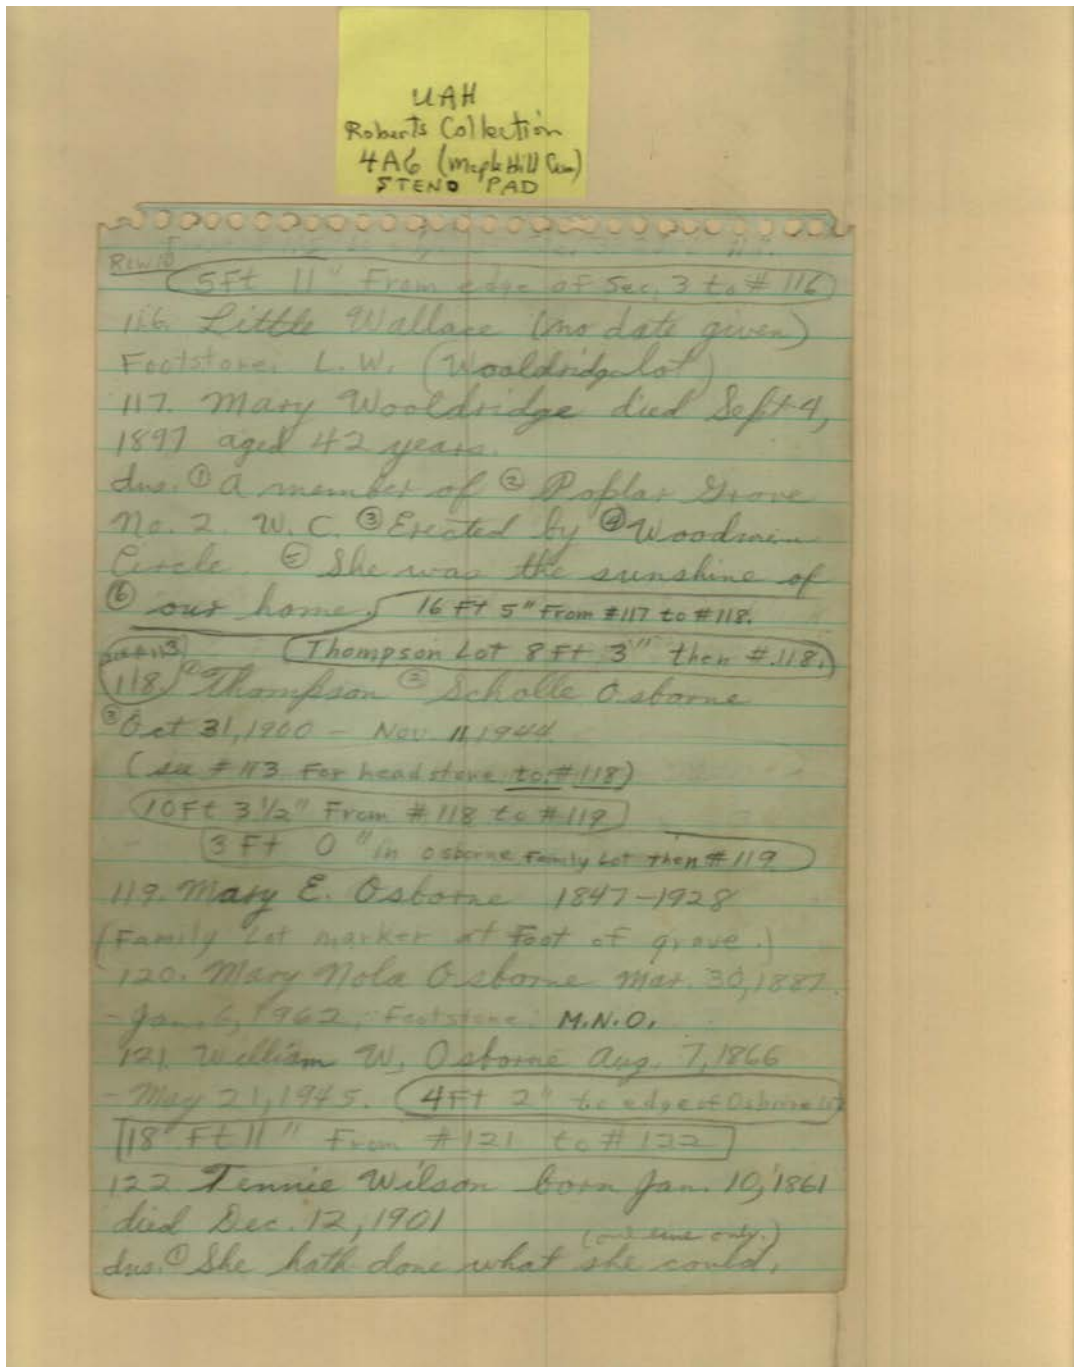 UAH
Roberts Collection
4A6 (Maple Hill Cem)
STENO PAD
Row 10
5Ft 11" From edge of Sec. 3 to #116
116. Little Wallace (no date given)
Footstone: L.W. (Wooldridge lot)
117. Mary Wooldridge died Sept 4,
1897 aged 42 years.
Ins. ① A member of ② Poplar Grove
No. 2. W.C. ③ Erected by ④ Woodmen
Circle. ⑤ She was the sunshine of
⑥ our home. 16 Ft 5" From #117 to #118.
Thompson Lot 8 Ft 3" then #118.
see #113
118 ① Thompson ② Scholle Osborne
③ Oct 31, 1900 - Nov 11, 1944
(see #113 For headstone to #118)
10Ft 3 1/2" From #118 to #119
3 Ft 0" in Osborne Family Lot then #119
119. Mary E. Osborne 1847-1928
(Family Lot marker at Foot of grave.)
120. Mary Nola Osborne Mar. 30, 1887
- Jan. 6, 1962, Footstone: M.N.O.
121. William W. Osborne Aug. 7, 1866
- May 21, 1945. 4Ft 2" to edge of Osborne lot
18 Ft 11" From #121 to #122
122 Tennie Wilson born Jan. 10, 1861
died Dec. 12, 1901
(one line only.)
Ins. ① She hath done what she could.